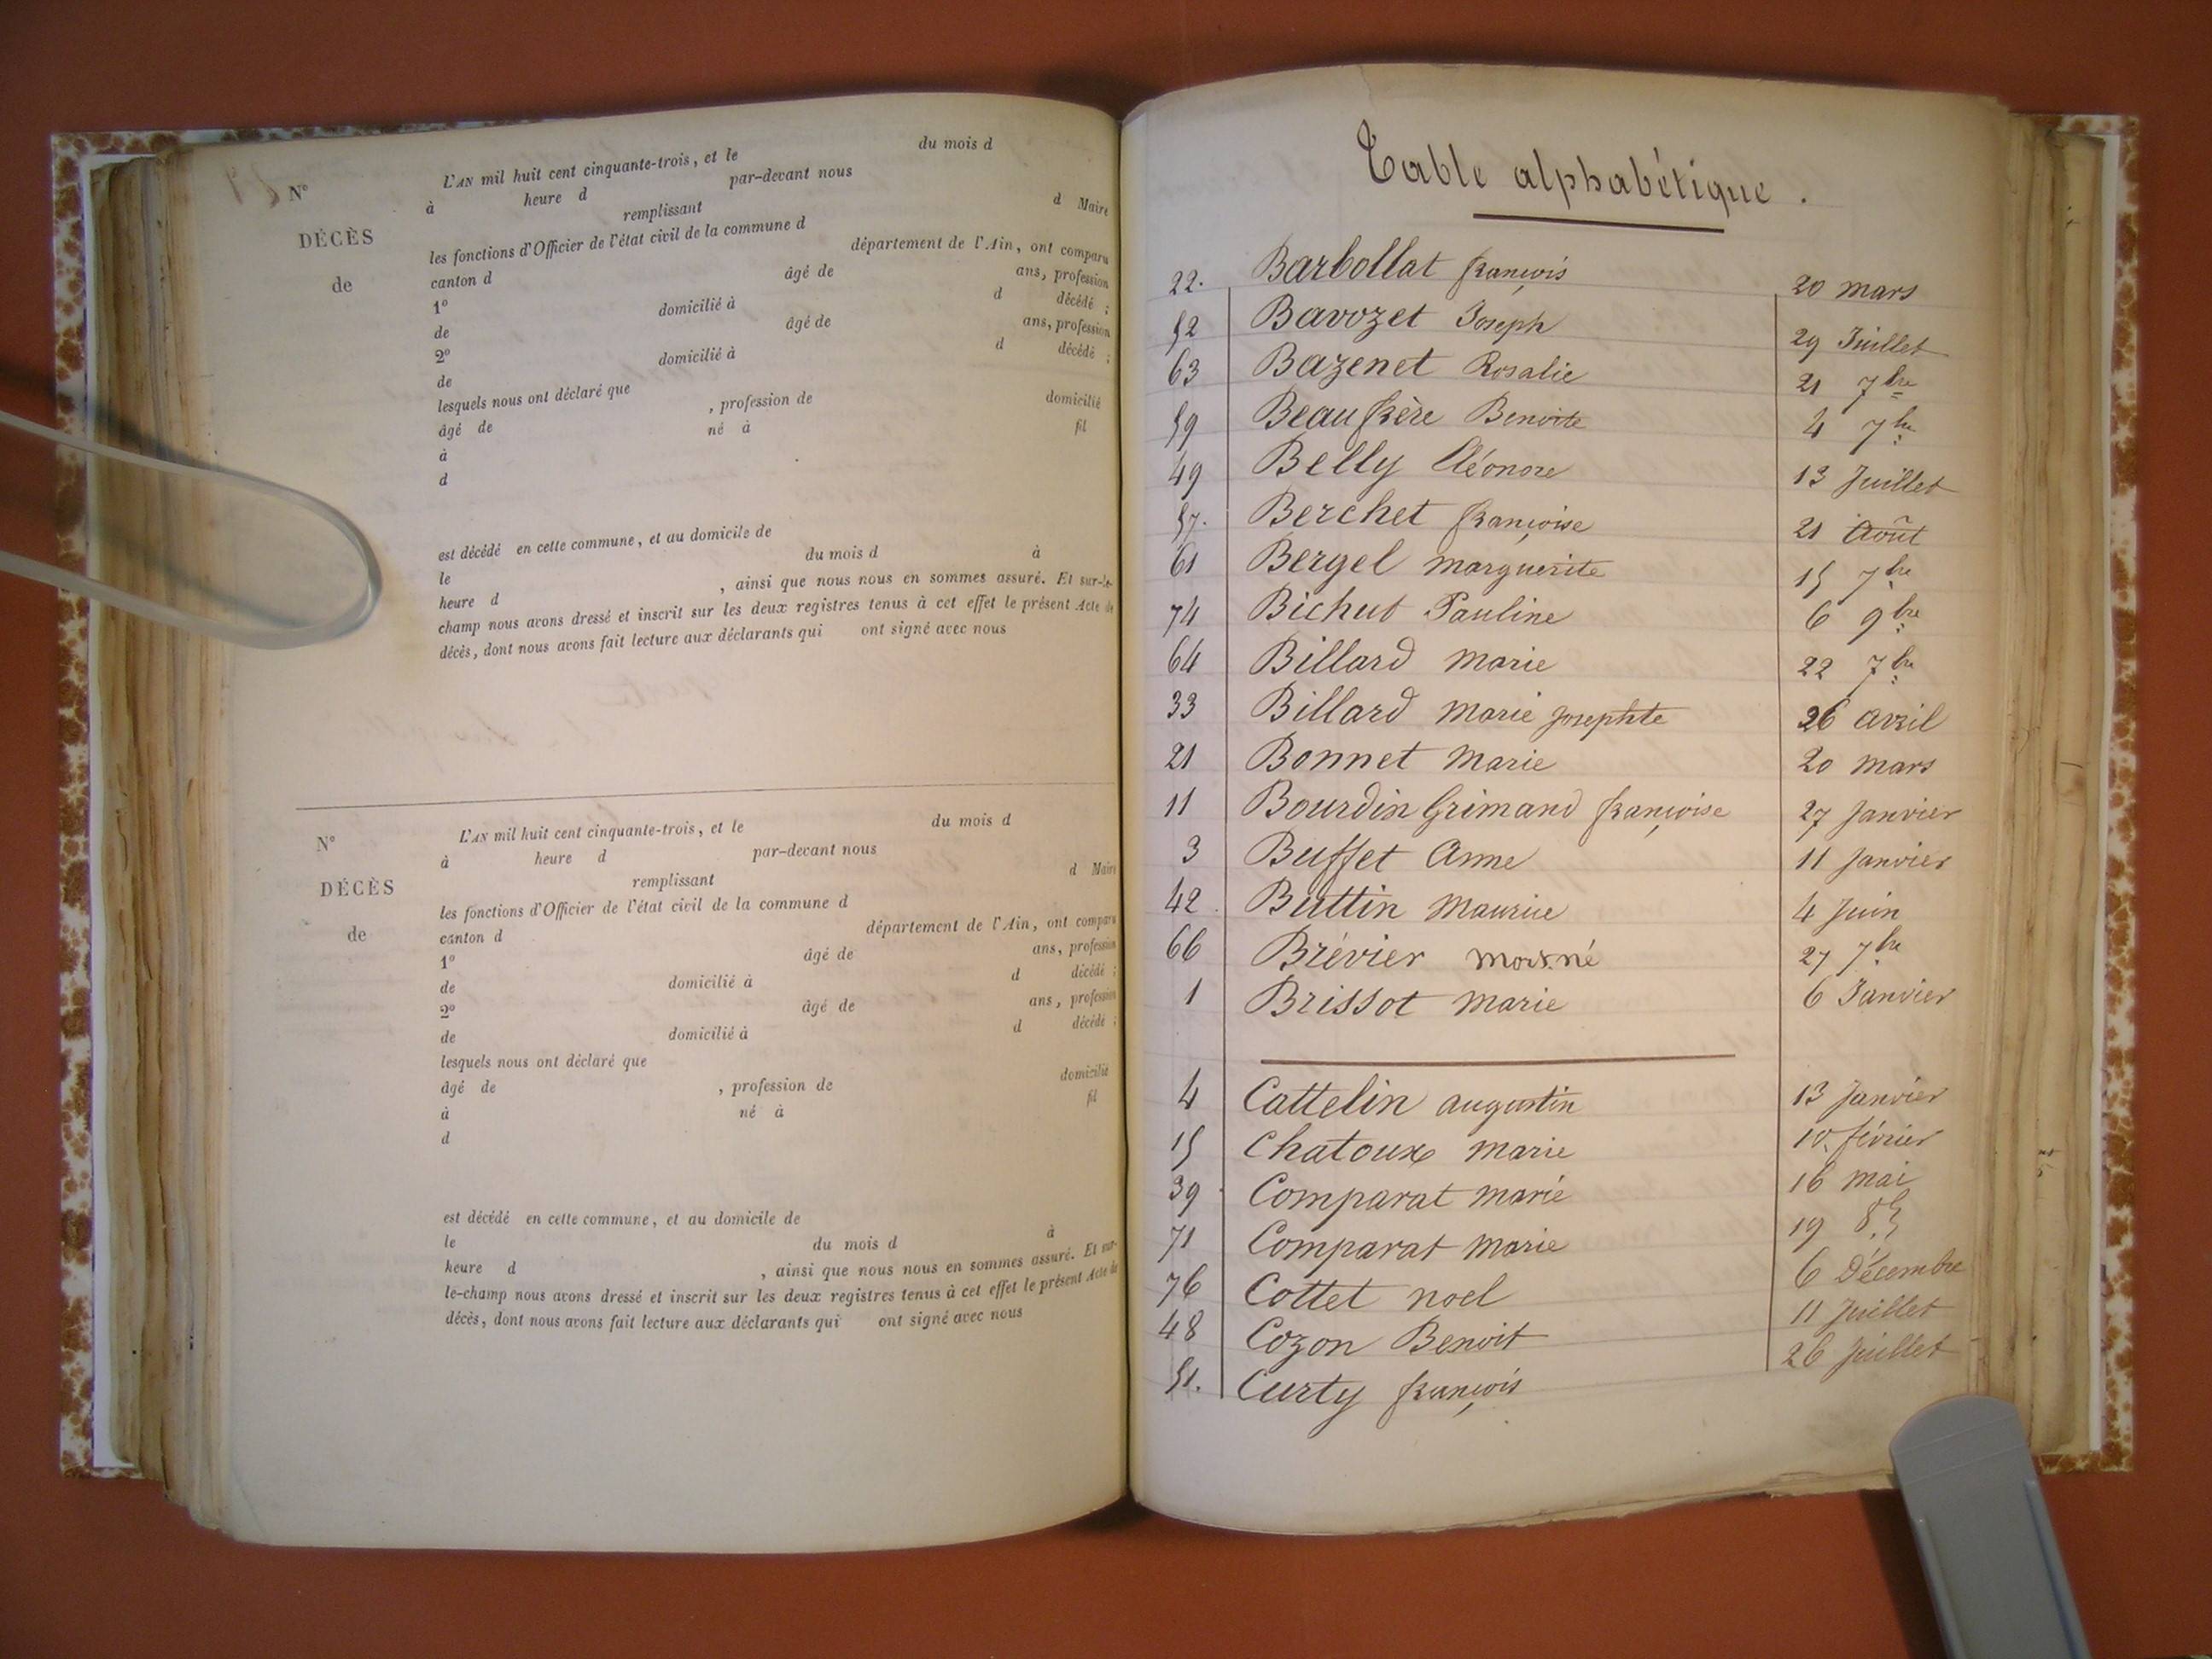 N°
DÉCÈS
de
L'AN mil huit cent cinquante-trois, et le du mois d
à heure d par-devant nous
remplissant d Maire
les fonctions d'Officier de l'état civil de la commune d
canton d département de l'Ain, ont comparu
1° âgé de ans, profession
de domicilié à d décédé ;
2° âgé de ans, profession
de domicilié à d décédé ;
lesquels nous ont déclaré que
âgé de , profession de domicilié
à né à fil
d
est décédé en cette commune, et au domicile de
le du mois d à
heure d , ainsi que nous nous en sommes assuré. Et sur-le-
champ nous avons dressé et inscrit sur les deux registres tenus à cet effet le présent Acte de
décès, dont nous avons fait lecture aux déclarants qui ont signé avec nous
N°
DÉCÈS
de
L'AN mil huit cent cinquante-trois, et le du mois d
à heure d par-devant nous
remplissant d Maire
les fonctions d'Officier de l'état civil de la commune d
canton d département de l'Ain, ont comparu
1° âgé de ans, profession
de domicilié à d décédé ;
2° âgé de ans, profession
de domicilié à d décédé ;
lesquels nous ont déclaré que
âgé de , profession de domicilié
à né à fil
d
est décédé en cette commune, et au domicile de
le du mois d à
heure d , ainsi que nous nous en sommes assuré. Et sur-
le-champ nous avons dressé et inscrit sur les deux registres tenus à cet effet le présent Acte de
décès, dont nous avons fait lecture aux déclarants qui ont signé avec nous
Table alphabétique.
22. Barbollat françois 20 mars
52 Bavozet Joseph 29 Juillet
63 Bazenet Rosalie 21 7bre
59 Beaufrère Benoite 4 7bre
49 Belly Eléonore 13 Juillet
57. Berchet françoise 21 Août
61 Bergel marguerite 15 7bre
74 Bichut Pauline 6 9bre
64 Billard marie 22 7bre
33 Billard marie josephte 26 avril
21 Bonnet Marie 20 mars
11 Bourdin Grimand françoise 27 Janvier
3 Buffet Anne 11 Janvier
42 Buttin Maurice 4 Juin
66 Brévier mort né 27 7bre
1 Brissot marie 6 Janvier
4 Cattelin augustin 13 Janvier
15 Chatoux marie 10 février
39 Comparat marie 16 mai
71 Comparat Marie 19 8
76 Cottet noel 6 Décembre
48 Cozon Benoit 11 Juillet
51. Curty françois 26 Juillet